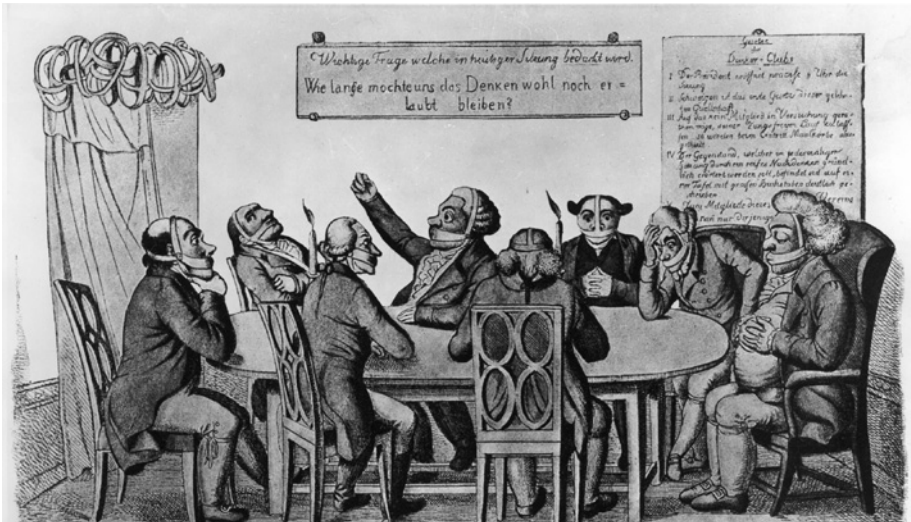 Wichtige Frage welche in heutiger Sitzung bedacht wird.
Wie lange möchte uns das Denken wohl noch er=
laubt bleiben?
Gesetze
des
Denker-Clubs
I Der Präsident eröffnet präcise 8 Uhr die
Sitzung
II Schweigen ist das erste Gesetz dieser gelehr-
ten Gesellschaft
III Auf das kein Mitglied in Versuchung gera-
then möge, seiner Zunge freyen Lauf zu lassen
so werden beim Maulkörbe aus-
getheilt
IV Der Gegenstand, welcher in jedesmaliger
Sitzung durch ein reifes Nachdenken gründ-
lich erörtert werden soll, befindet sich auf ei-
ner Tafel mit großen Buchstaben deutlich ge-
schrieben
Mitglieder Vereins
nur